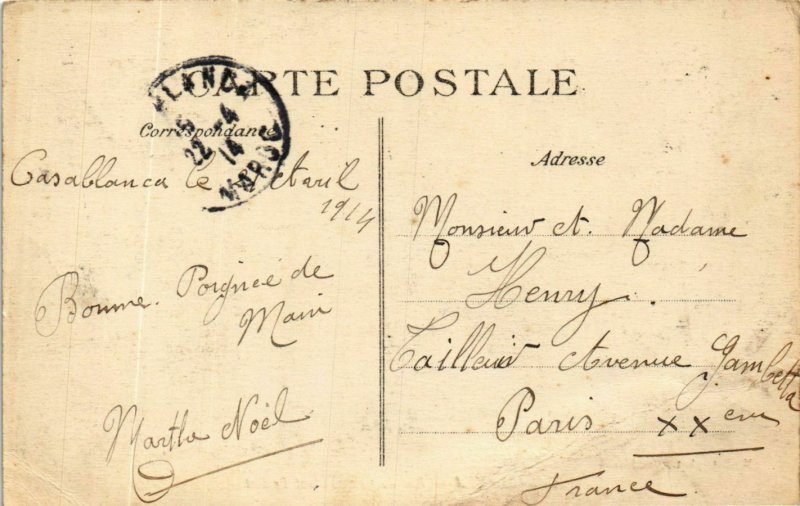 CARTE POSTALE
Correspondance
BLANCA
22 -4
14
MAROC
Casablanca le Avril
1914
Bonne Poignée de
Main
Martha Noël
Adresse
Monsieur et Madame
Henry
Tailleur Avenue Gambetta
Paris XX eme
France